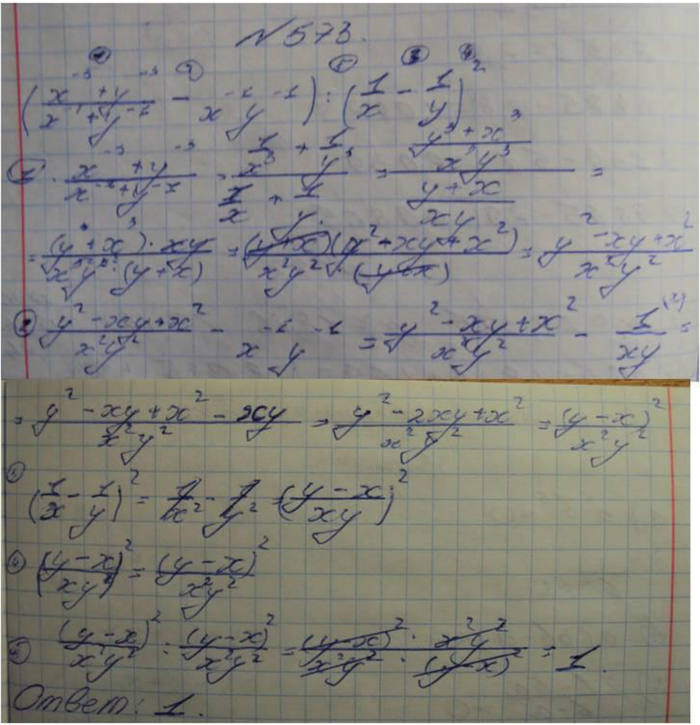 №573.
(x⁻³+y⁻³ / x⁻¹+y⁻¹ - x⁻¹y⁻¹) : (1/x - 1/y)²
1. x⁻³+y⁻³ / x⁻¹+y⁻¹ = (1/x³ + 1/y³) / (1/x + 1/y) = ((y³+x³) / x³y³) / ((y+x) / xy) =
= (y³+x³)·xy / x³y³·(y+x) = (y+x)(y²-xy+x²) / x²y²·(y+x) = y²-xy+x² / x²y²
2 y²-xy+x² / x²y² - x⁻¹y⁻¹ = y²-xy+x² / x²y² - 1/xy =
= y²-xy+x²-xy / x²y² = y²-2xy+x² / x²y² = (y-x)² / x²y²
(1/x - 1/y)² = 1/x² - 1/y² = (y-x / xy)²
(y-x / xy)² = (y-x)² / x²y²
(y-x)² / x²y² : (y-x)² / x²y² = (y-x)² / x²y² · x²y² / (y-x)² = 1.
Ответ: 1.